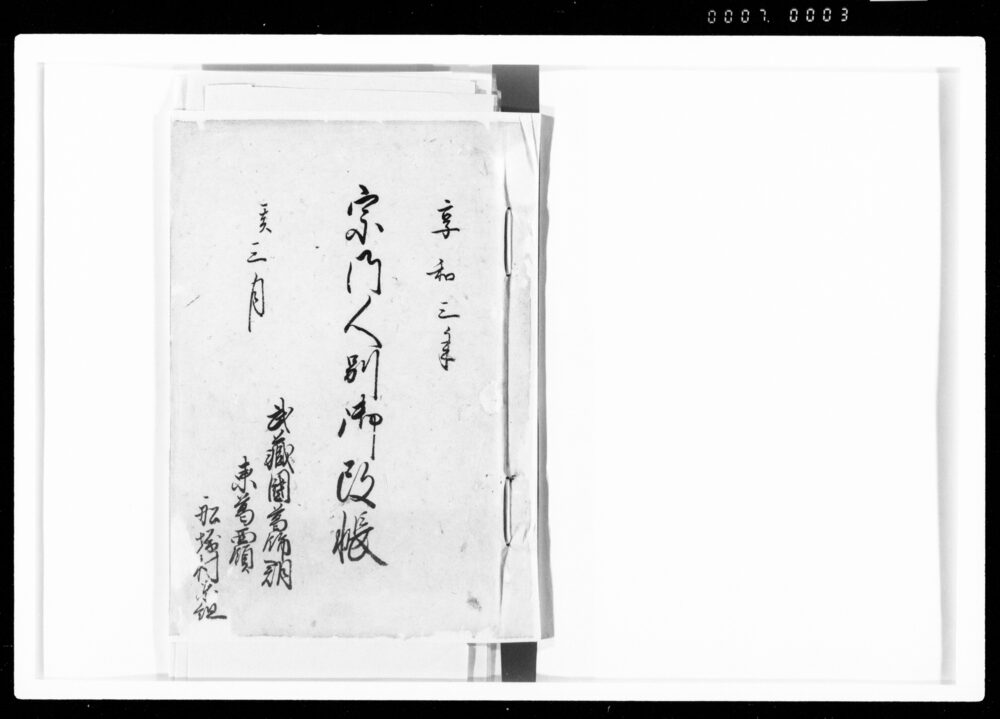 0007 0003
享和三年
宗門人別御改帳
亥三月
武蔵国葛飾郡
東葛西領
船堀村